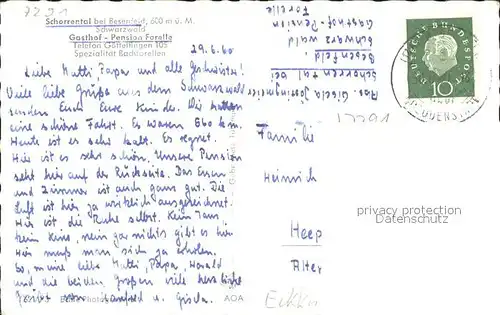 7291
Schorrental bei Besenfeld, 600 m ü. M.
Schwarzwald
Gasthof - Pension Forelle
Telefon Göttelfingen 105
Spezialität Bachforellen
29.6.60
Liebe Mutti, Papa und alle Geschwister!
Viele liebe Grüße aus dem Schwarzwald
senden Euch Eure Kinder. Wir hatten
eine schöne Fahrt. Es waren 660 km.
Heute ist es sehr kalt. Es regnet.
Hier ist es sehr schön. Unsere Pension
seht hier auf der Rückseite. Das Essen
und Zimmer ist auch ganz gut. Die
Luft ist hier ja wirklich ausgezeichnet.
Hier ist die Ruhe selbst. Kein Tam,
kein Kino, nein gar nichts gibt es hier.
Hier muß man sich ja erholen.
So, meine liebe Mutti, Papa, Harald
und die beiden Großen viele herzliche
Grüße von Manfred u. Gisela.
AOA
Abs. Gisela
Schorrental bei
Besenfeld
Schwarzwald
Gasthof-Pension
Forelle
17291
DEUTSCHE BUNDESPOST
10
Familie
Heinrich
Heep
Alter
privacy protection
Datenschutz